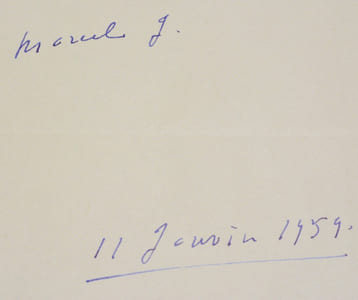 Marcel J.
11 Janvier 1959.